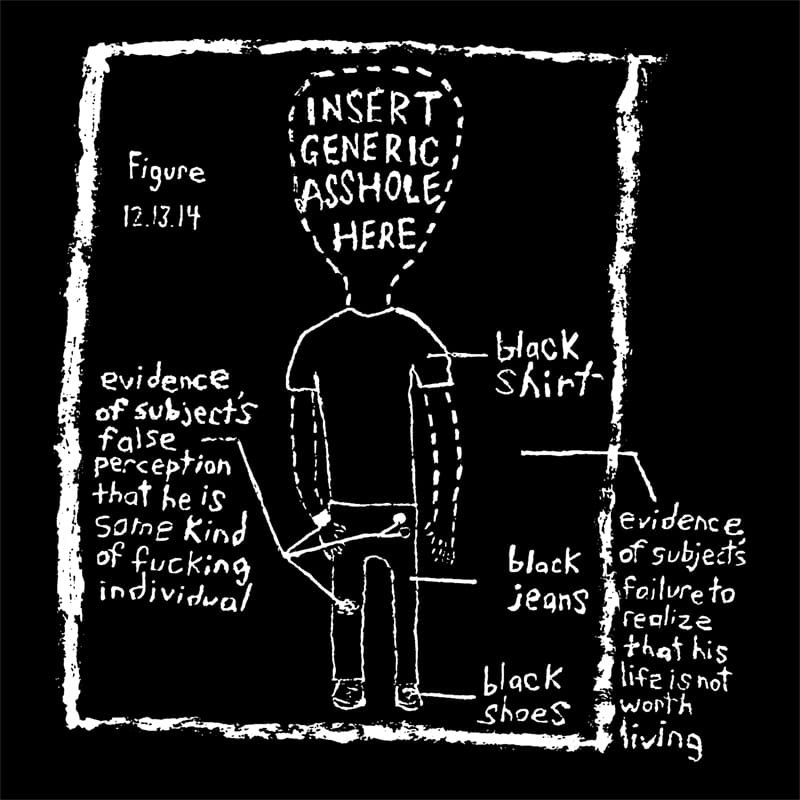 INSERT
GENERIC
ASSHOLE
HERE
Figure
12.13.14
black
shirt
evidence
of subject's
false
perception
that he is
some kind
of fucking
individual
evidence
of subject's
failure to
realize
that his
life is not
worth
living
black
jeans
black
shoes